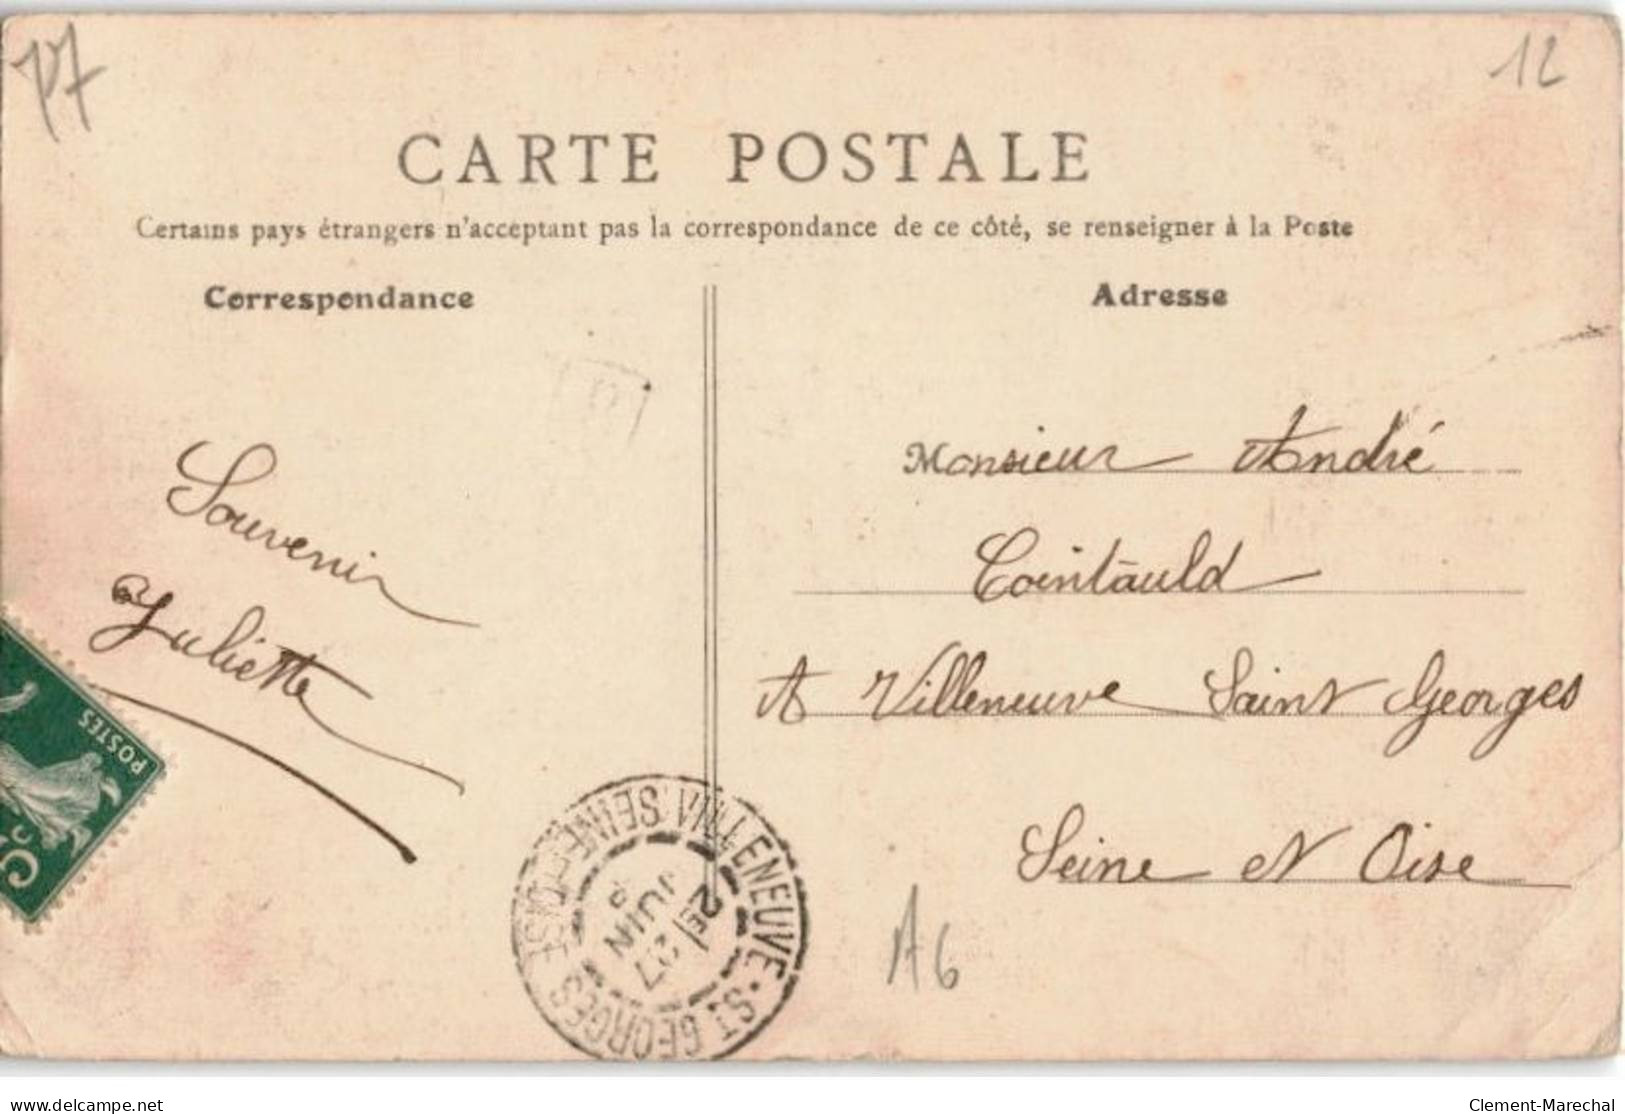 P7
12
CARTE POSTALE
Certains pays étrangers n'acceptant pas la correspondance de ce côté, se renseigner à la Poste
Correspondance
Adresse
Souvenir
Juliette
Monsieur André
Cointauld
A Villeneuve Saint Georges
Seine et Oise
A6
POSTES
5c
VILLENEUVE-ST GEORGES
SEINE-ET-OISE
2E
27
JUIN
delcampe.net
Clement-Marechal